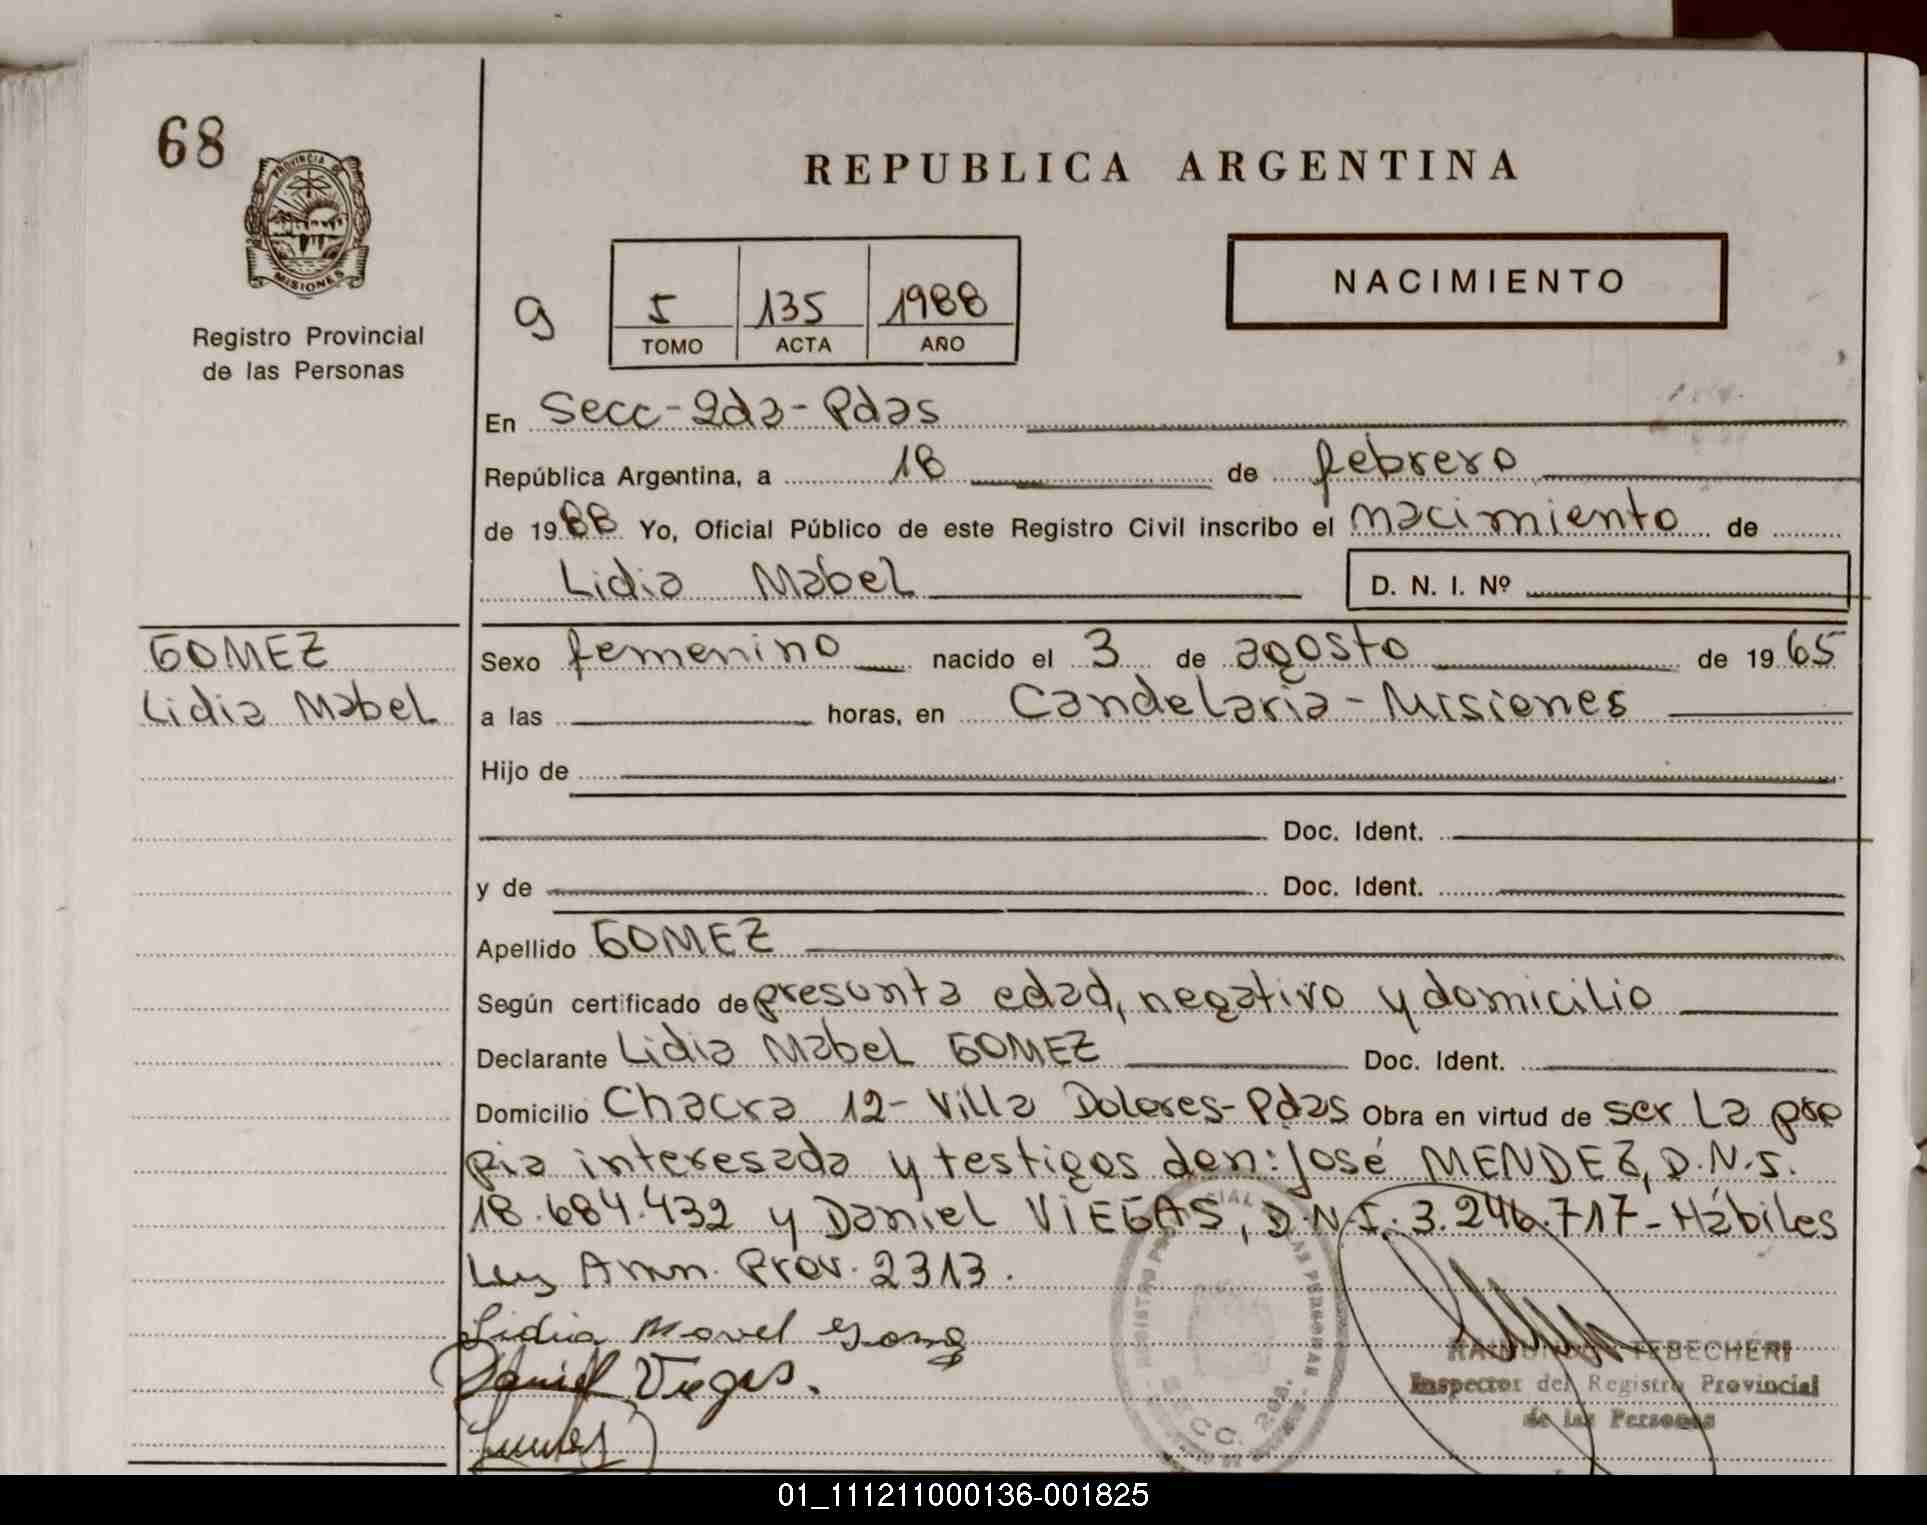 68
PROVINCIA DE
MISIONES
Registro Provincial
de las Personas
REPUBLICA ARGENTINA
NACIMIENTO
9
5 135 1988
TOMO ACTA AÑO
En Secc-2da-Pdas
República Argentina, a 18 de febrero
de 1988 Yo, Oficial Público de este Registro Civil inscribo el nacimiento de
Lidia Mabel D. N. I. Nº
GOMEZ
Lidia Mabel
Sexo femenino nacido el 3 de agosto de 1965
a las horas, en Candelaria - Misiones
Hijo de
Doc. Ident.
y de Doc. Ident.
Apellido GOMEZ
Según certificado de presunta edad, negativo y domicilio
Declarante Lidia Mabel GOMEZ Doc. Ident.
Domicilio Chacra 12- Villa Dolores-Pdas Obra en virtud de ser La pro
pia interesada y testigos don: José MENDEZ, D.N.I.
18.684.432 y Daniel VIEGAS, D.N.I. 3.246.717- Hábiles
Ley Amn. Prov. 2313.
Lidia Mavel
Daniel Viegas.
RAIMUNDO TEBECHERI
Inspector del Registro Provincial
de las Personas
01_111211000136-001825